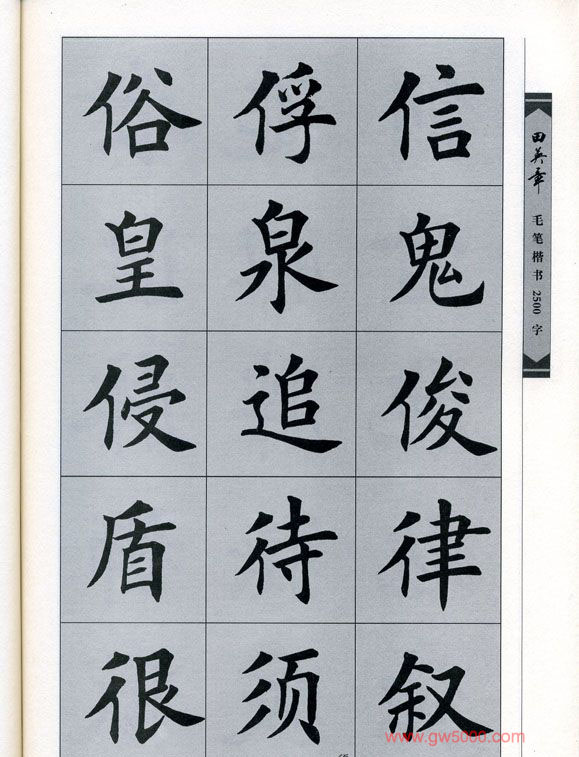 俗 俘 信
皇 泉 鬼
侵 追 俊
盾 待 律
很 须 叙
田英章 毛笔楷书2500字
www.gw5000.com